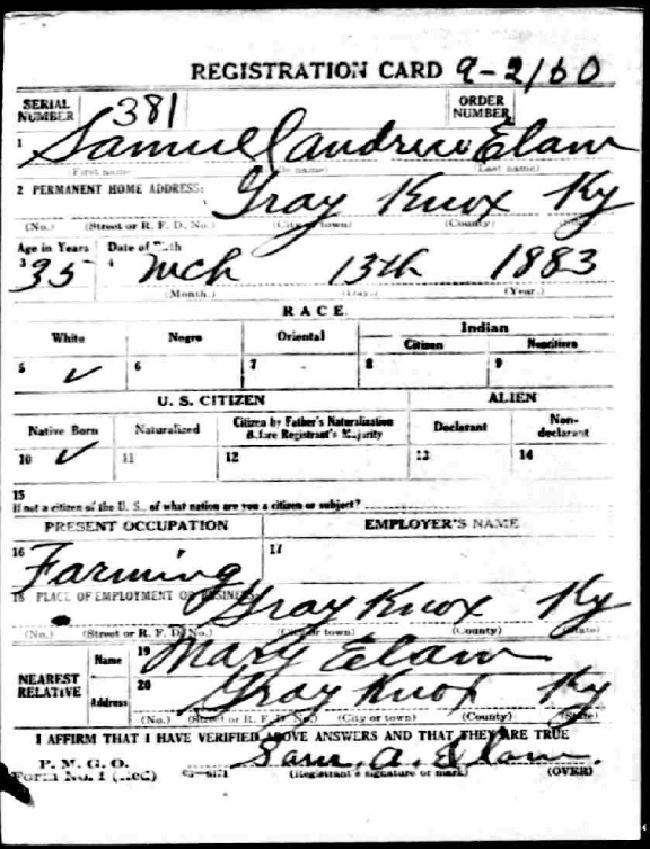 REGISTRATION CARD 9-2160
SERIAL NUMBER 381 ORDER NUMBER
1 Samuel Candrew Elam
(First name) (Last name)
2 PERMANENT HOME ADDRESS: Gray Knox Ky
(No.) (Street or R. F. D. No.) (City or town) (County) (State)
Age in Years Date of Birth
3 35 4 Mch 13th 1883
(Month.) (Day.) (Year.)
RACE
White Negro Oriental Indian
Citizen Noncitizen
5 ✓ 6 7 8 9
U. S. CITIZEN ALIEN
Native Born Naturalized Citizen by Father's Naturalization Before Registrant's Majority Declarant Non-declarant
10 ✓ 11 12 13 14
15
If not a citizen of the U. S., of what nation are you a citizen or subject?
PRESENT OCCUPATION EMPLOYER'S NAME
16 Farming 17
18 PLACE OF EMPLOYMENT OR BUSINESS: Gray Knox Ky
(No.) (Street or R. F. D. No.) (City or town) (County) (State)
NEAREST RELATIVE Name 19 Mary Elam
Address 20 Gray Knox Ky
(No.) (Street or R. F. D. No.) (City or town) (County) (State)
I AFFIRM THAT I HAVE VERIFIED ABOVE ANSWERS AND THAT THEY ARE TRUE
P. M. G. O.
Form No. 1 (Red) Sam. A. Elam.
(Registrant's signature or mark) (OVER)